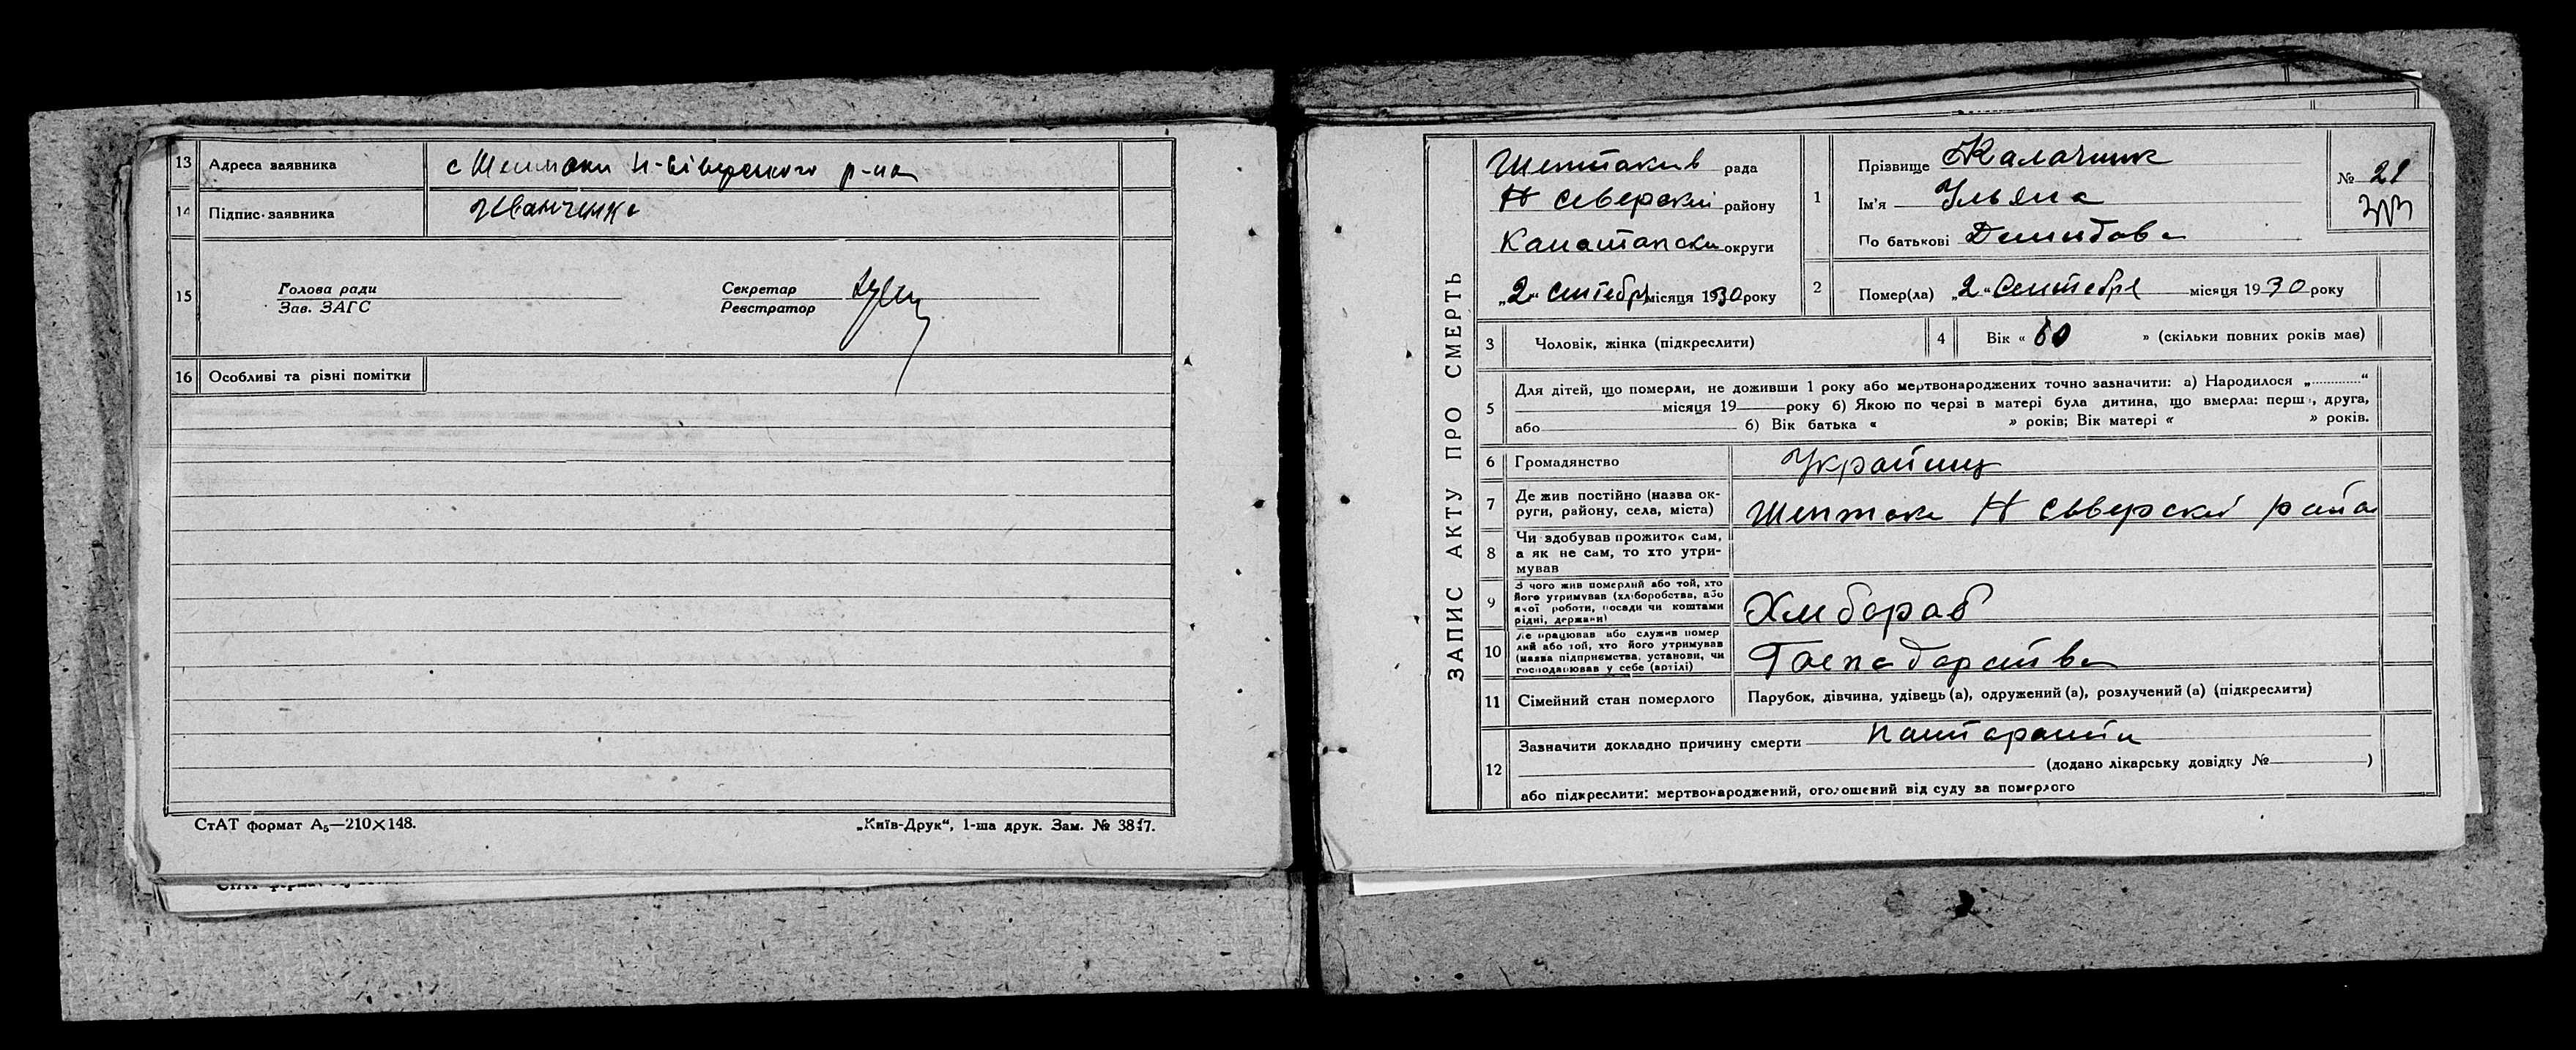 13 Адреса заявника с Шептаки Н-Сіверского р-на
14 Підпис заявника Иванченко
15 Голова ради
Зав. ЗАГС
Секретар
Реєстратор
16 Особливі та різні помітки
СтАТ формат А₅—210×148.
„Київ-Друк“, 1-ша друк. Зам. № 3847.
ЗАПИС АКТУ ПРО СМЕРТЬ
Шептаков рада
Н Северский району
Канатапски округи
„2“ Сентебря місяця 1930 року
1 Прізвище Калачник
Ім'я Ульяна
По батькові Демидова
№ 21
2 Помер(ла) „2“ Сентебря місяця 1930 року
3 Чоловік, жінка (підкреслити)
4 Вік « 60 » (скільки повних років має)
5 Для дітей, що померли, не доживши 1 року або мертвонароджених точно зазначити: а) Народилося „ “
місяця 19 року б) Якою по черзі в матері була дитина, що вмерла: перша, друга,
або б) Вік батька « » років; Вік матері « » років.
6 Громадянство Украйинц
7 Де жив постійно (назва ок-
руги, району, села, міста) Шептаки Н Сьверский райа
8 Чи здобував прожиток сам,
а як не сам, то хто утри-
мував
9 З чого жив померлий або той, хто
його утримував (хліборобства, або
якої роботи, посади чи коштами
рідні, держави) Хлибораб
10 Де працював або служив помер
лий або той, хто його утримував
(назва підприємства, установи, чи
господарював у себе (артілі) Госпадарства
11 Сімейний стан померлого Парубок, дівчина, удівець (а), одружений (а), розлучений (а) (підкреслити)
12 Зазначити докладно причину смерти
(додано лікарську довідку № )
або підкреслити: мертвонароджений, оголошений від суду за померлого